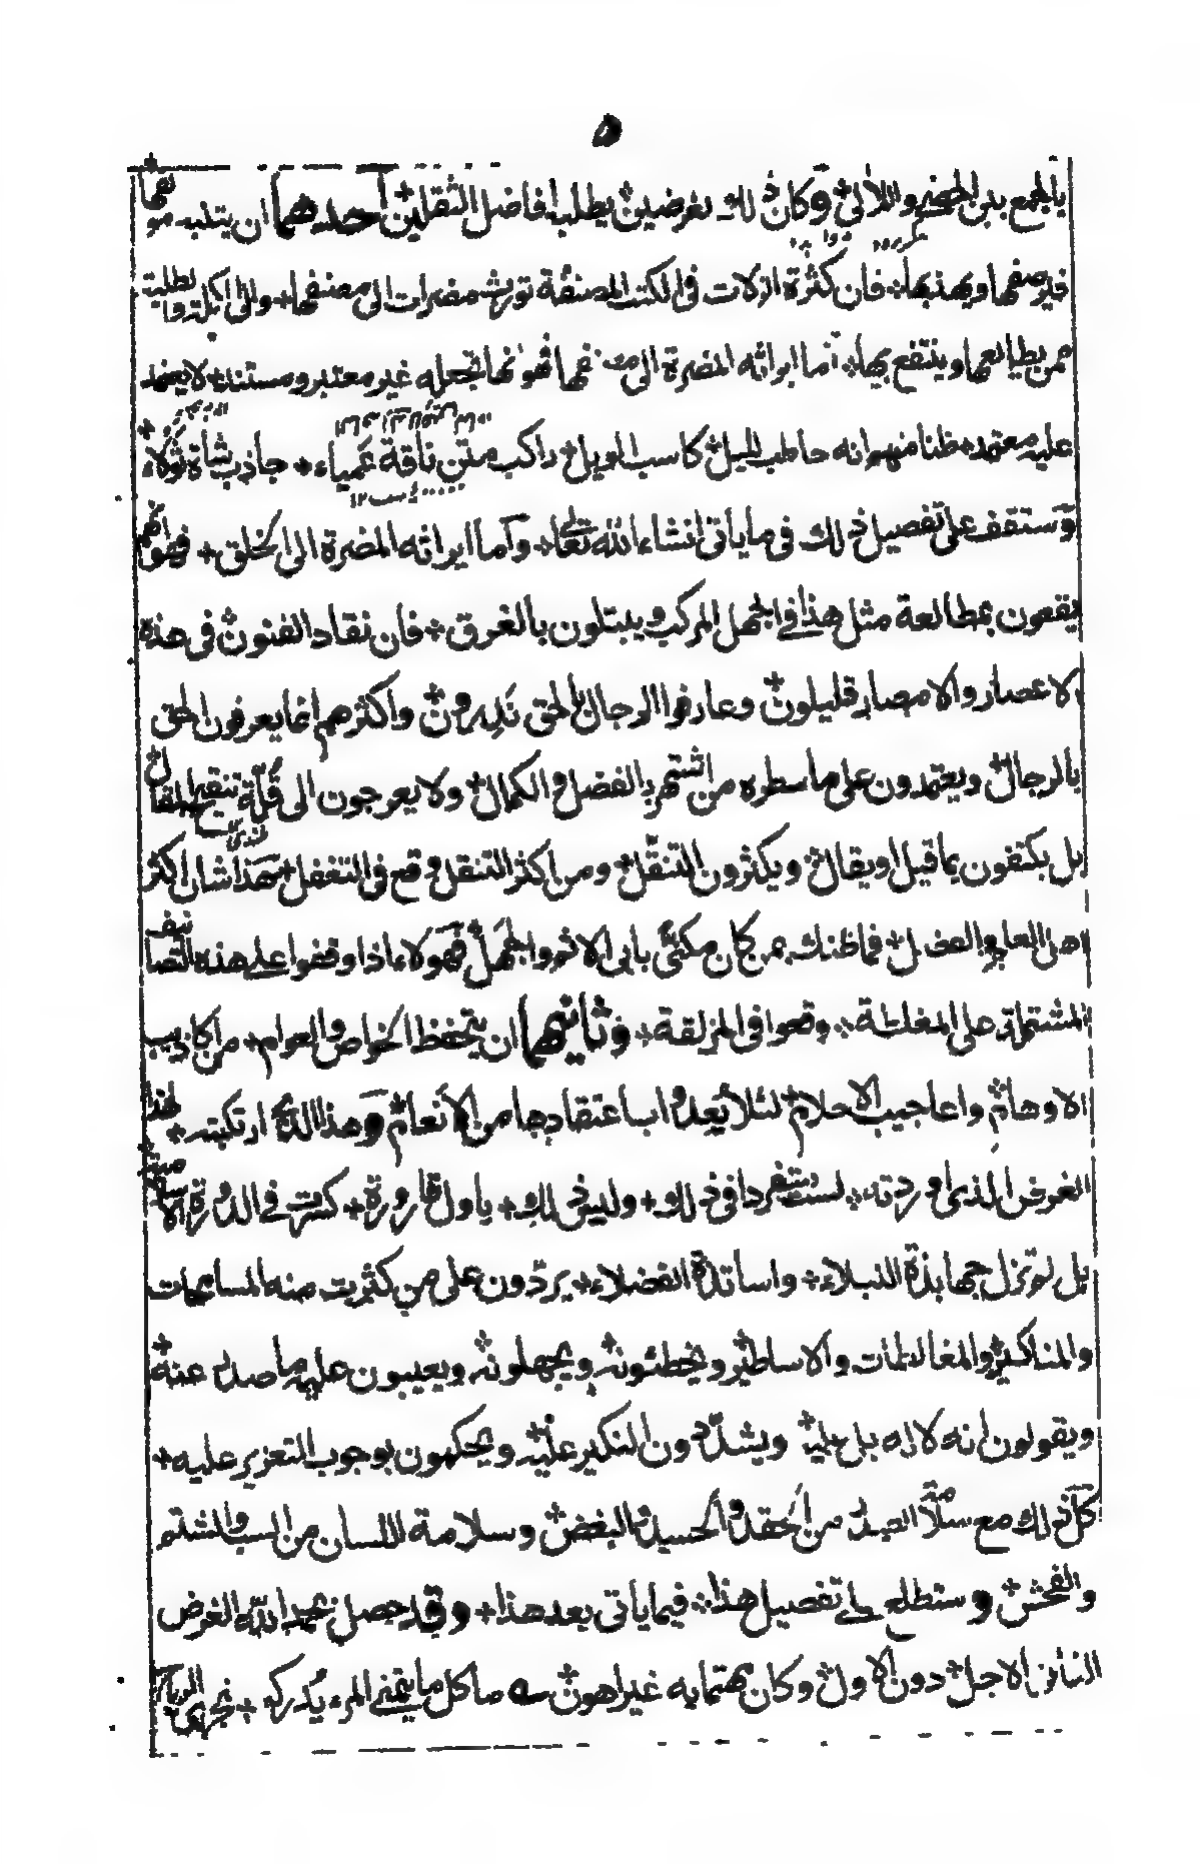 ٥
بالجمع بين الحضير واللآلي وكان ذلك لغرضين يطلبها فاضل الثقلين أحدهما ان يتنبه مو
فيصفها ويهذبها فان كثرة الزلات في الكتب المصنفة تورث مضرات الى مصنفها والى
من يطالعها وينتفع بها اما ايراثه المضرة الى فهو انها تجعله غير معتبر ومستند لا يعتمد
عليه معتمد ظنا منهم انه حاطب الليل كاسب الويل راكب متن ناقة عمياء جاذب شاة ثولاء
وستقف على تفصيل ذلك في ما يأتي انشاء الله تعالى واما ايراثه المضرة الى الخلق فهو انهم
يقعون بمطالعة مثل هذا في الجهل المركب ويبتلون بالغرق فان نقاد الفنون في هذه
الاعصار والامصار قليلون وعارفوا الرجال بالحق ندرون واكثرهم انما يعرفون الحق
بالرجال ويعتمدون على ما سطره من اشتهر بالفضل والكمال ولا يعرجون الى قلة تنقيح المقال
بل يكتفون بما قيل او يقال ويكثرون التنقل ومن اكثر التنقل وقع في التغفل هذا شان اكثر
اهل العلم والفضل فما ظنك بمن كان مكنى بابي الاثم والجهل فهؤلاء اذا وقفوا على هذه التصانيف
المشتملة على المغلطة وقعوا في المزلقة وثانيهما ان يتحفظ الخواص والعوام من اكاذيب
الاوهام واعاجيب الاحلام لئلا يعدوا باعتقادها من الانعام وهذا الذي ارتكبته لهذا
الغرض الذي اوردته لست متفردا في ذلك وليس ذلك باول قارورة كسرت في الدورة الاسلامية
بل لم تزل جهابذة النبلاء واساتذة الفضلاء يردون على من كثرت منه المسامحات
والمناكير والمغالطات والاساطير ويخطئونه ويجهلونه ويعيبون عليه ما صدر عنه
ويقولون انه لا اله بل بليد ويشددون النكير عليه ويحكمون بوجوب التعزير عليه
كل ذلك مع سلامة الصدر من الحقد والحسد والبغض وسلامة اللسان من السب والشتم
والفحش وستطلع على تفصيل هذا فيما يأتي بعد هذا وقد حصل بحمد الله الغرض
الثاني الاجل دون الاول وكان بهتمايه غير اهون سه ما كل ما يتمنى المرء يدركه تجري الرياح